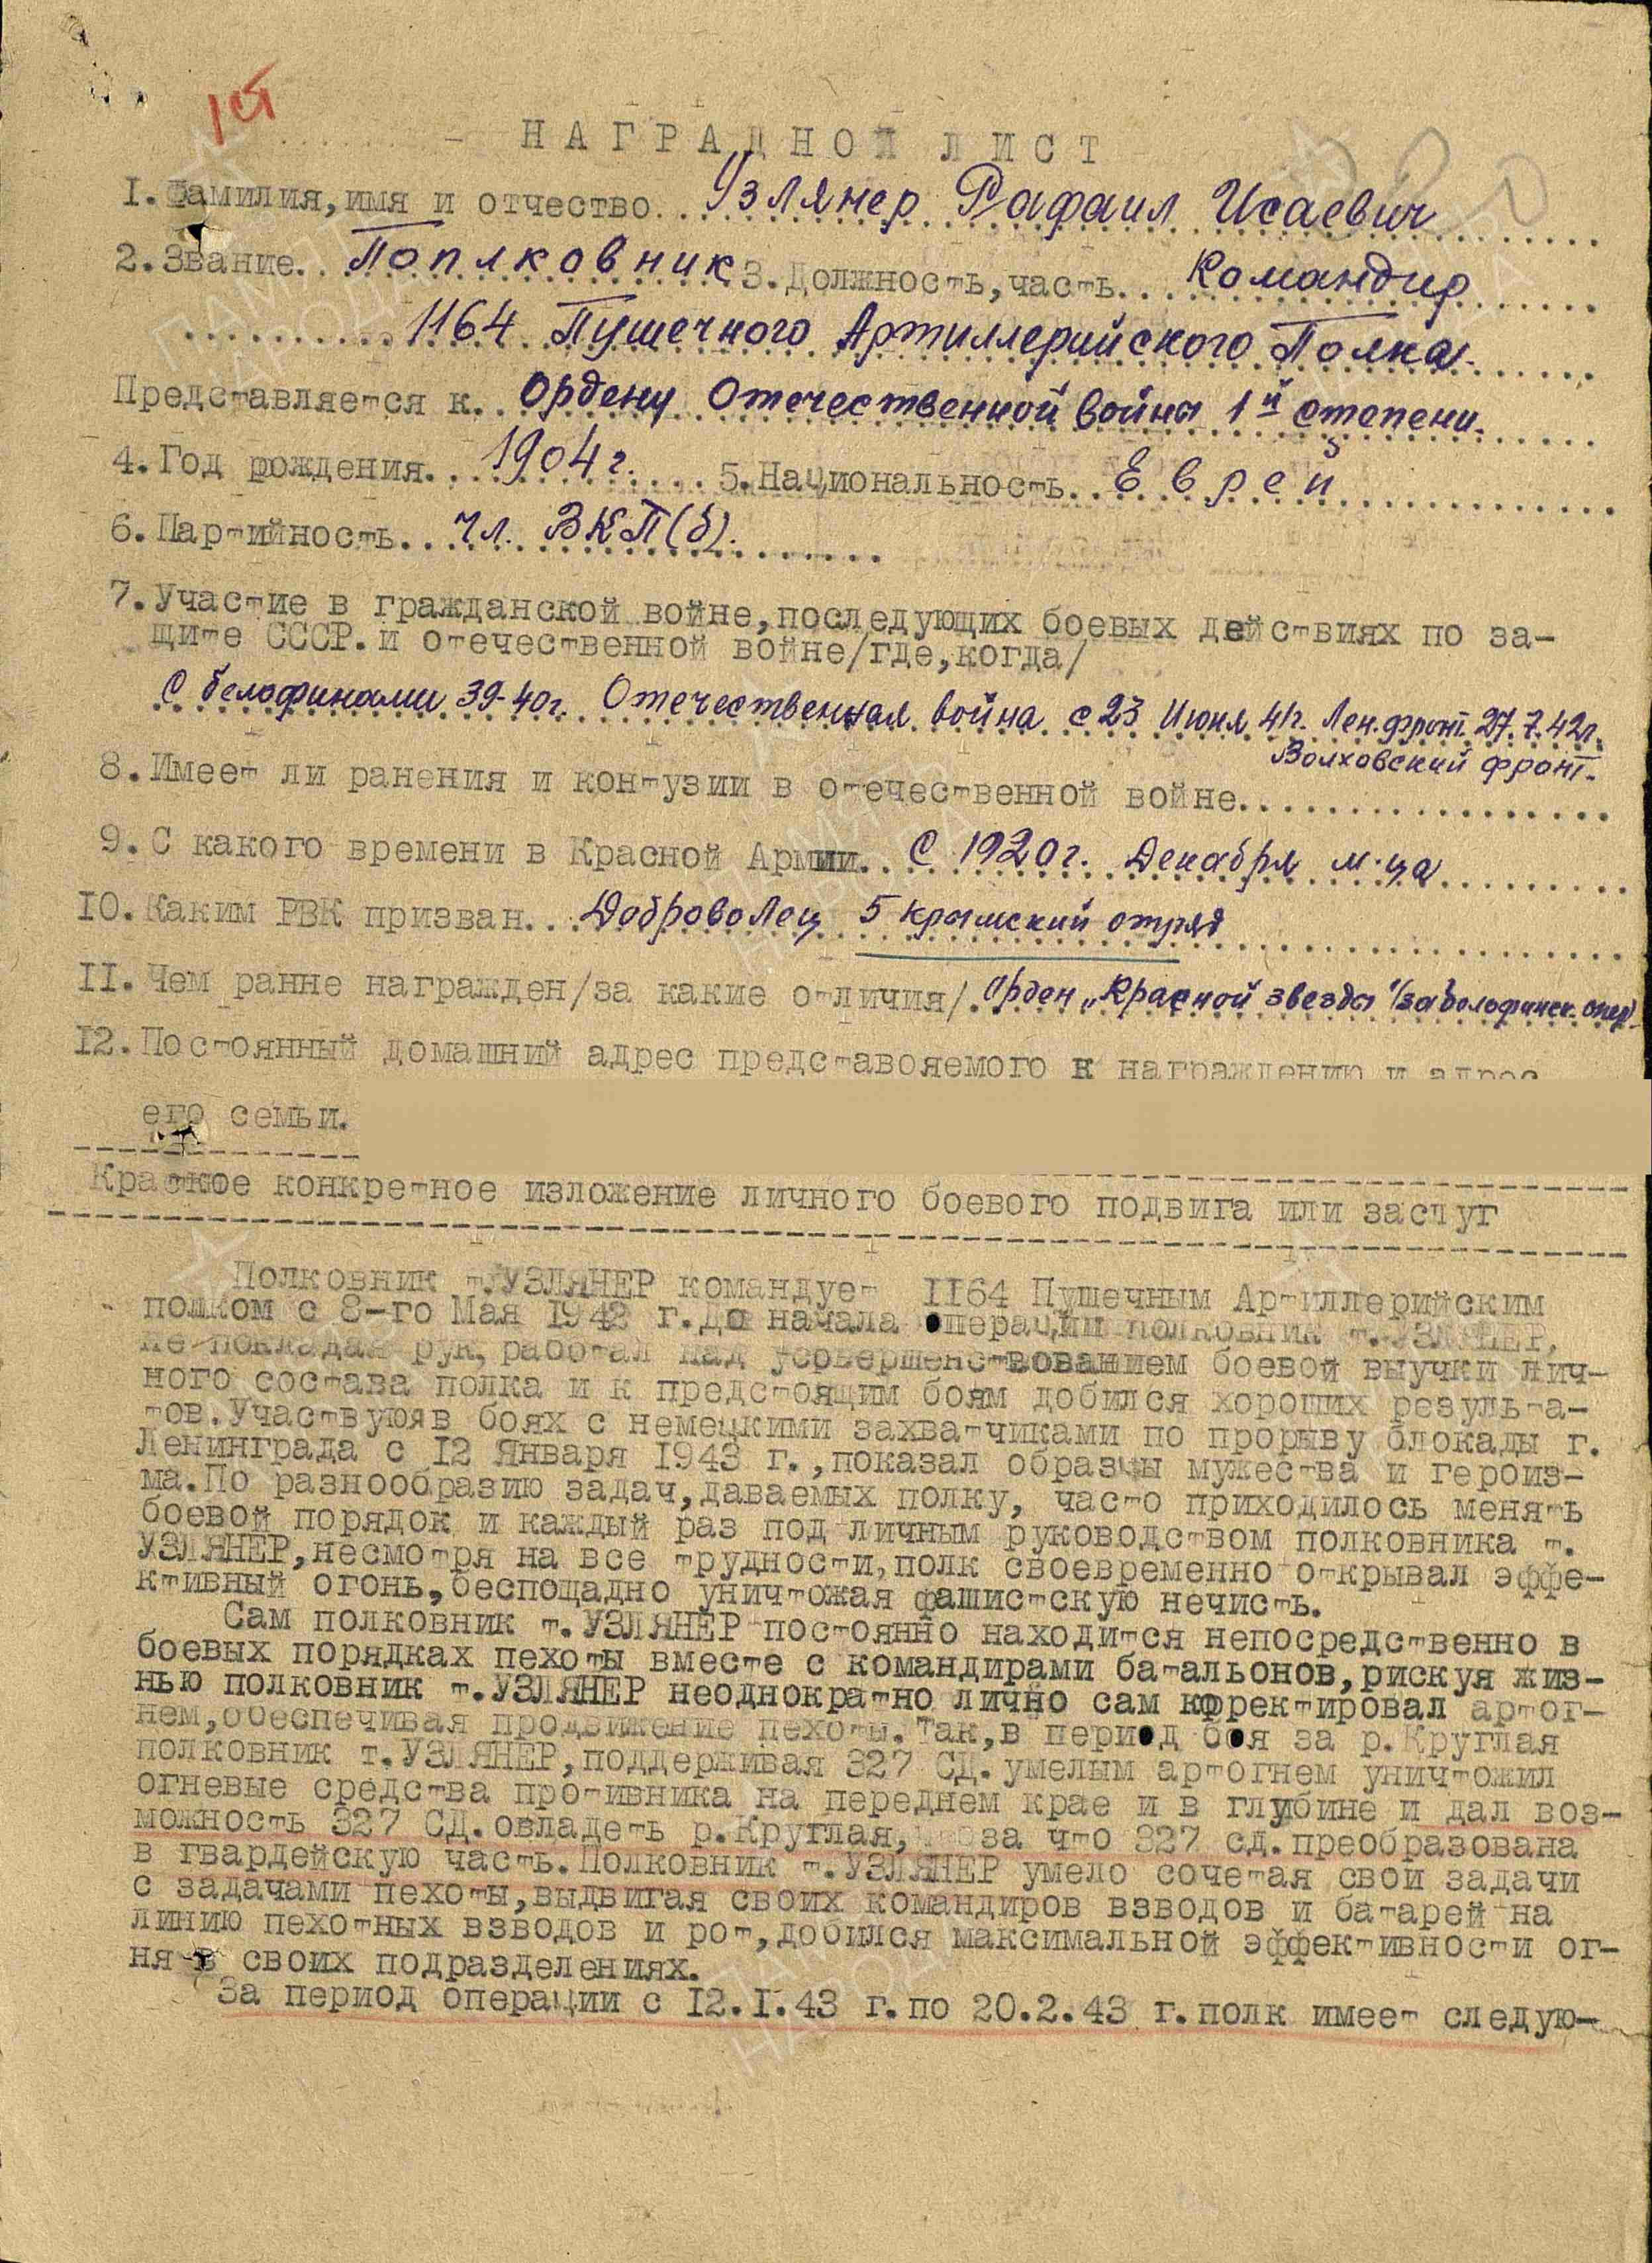 НАГРАДНОЙ ЛИСТ
1. Фамилия, имя и отчество.. Узлянер Рафаил Исаевич
2. Звание.. Поплковник 3. Должность, часть... Командир
1164 Пушечного Артиллерийского Полка.
Представляется к.. Ордену Отечественной война 1й степени.
4. Год рождения.. 1904 г. 5. Национальность.. Еврей
6. Партийность.. чл. ВКП(б).
7. Участие в гражданской войне, последующих боевых действиях по за-
щите СССР. и отечественной войне/где, когда/
С белофинами 39-40г. Отечественная война с 23 Июня 41г. Лен. фронт. 27.7.42г.
Волховский фронт.
8. Имеет ли ранения и контузии в отечественной войне..
9. С какого времени в Красной Армии.. С 1920 г. Декабря м-ца
10. Каким РВК призван... Доброволец 5 крымский отряд
11. Чем ранне награжден/за какие отличия/. Орден „Красной звезды"(за белофинск. опер)
12. Постоянный домашний адрес представояемого к награждению и адрес
его семьи.
Краткое конкретное изложение личного боевого подвига или заслуг
Полковник т. УЗЛЯНЕР командует 1164 Пушечным Артиллерийским
полком с 8-го Мая 1942 г. До начала операции полковник т. УЗЛЯНЕР,
не покладая рук, работал над усовершенствованием боевой выучки лич-
ного состава полка и к предстоящим боям добился хороших результа-
тов. Участвуюяв боях с немецкими захватчиками по прорыву блокады г.
Ленинграда с 12 Января 1943 г., показал образцы мужества и героиз-
ма. По разнообразию задач, даваемых полку, часто приходилось менять
боевой порядок и каждый раз под личным руководством полковника т.
УЗЛЯНЕР, несмотря на все трудности, полк своевременно открывал эффе-
ктивный огонь, беспощадно уничтожая фашистскую нечисть.
Сам полковник т. УЗЛЯНЕР постоянно находится непосредственно в
боевых порядках пехоты вместе с командирами батальонов, рискуя жиз-
нью полковник т. УЗЛЯНЕР неоднократно лично сам корректировал артог-
нем, обеспечивая продвижение пехоты. Так, в период боя за р. Круглая
полковник т. УЗЛЯНЕР, поддерживая 327 СД. умелым артогнем уничтожил
огневые средства противника на переднем крае и в глубине и дал воз-
можность 327 СД. овладеть р. Круглая, за что 327 сд. преобразована
в гвардейскую часть. Полковник т. УЗЛЯНЕР умело сочетая свои задачи
с задачами пехоты, выдвигая своих командиров взводов и батарей на
линию пехотных взводов и рот, добился максимальной эффективности ог-
ня в своих подразделениях.
За период операции с 12.1.43 г. по 20.2.43 г. полк имеет следую-